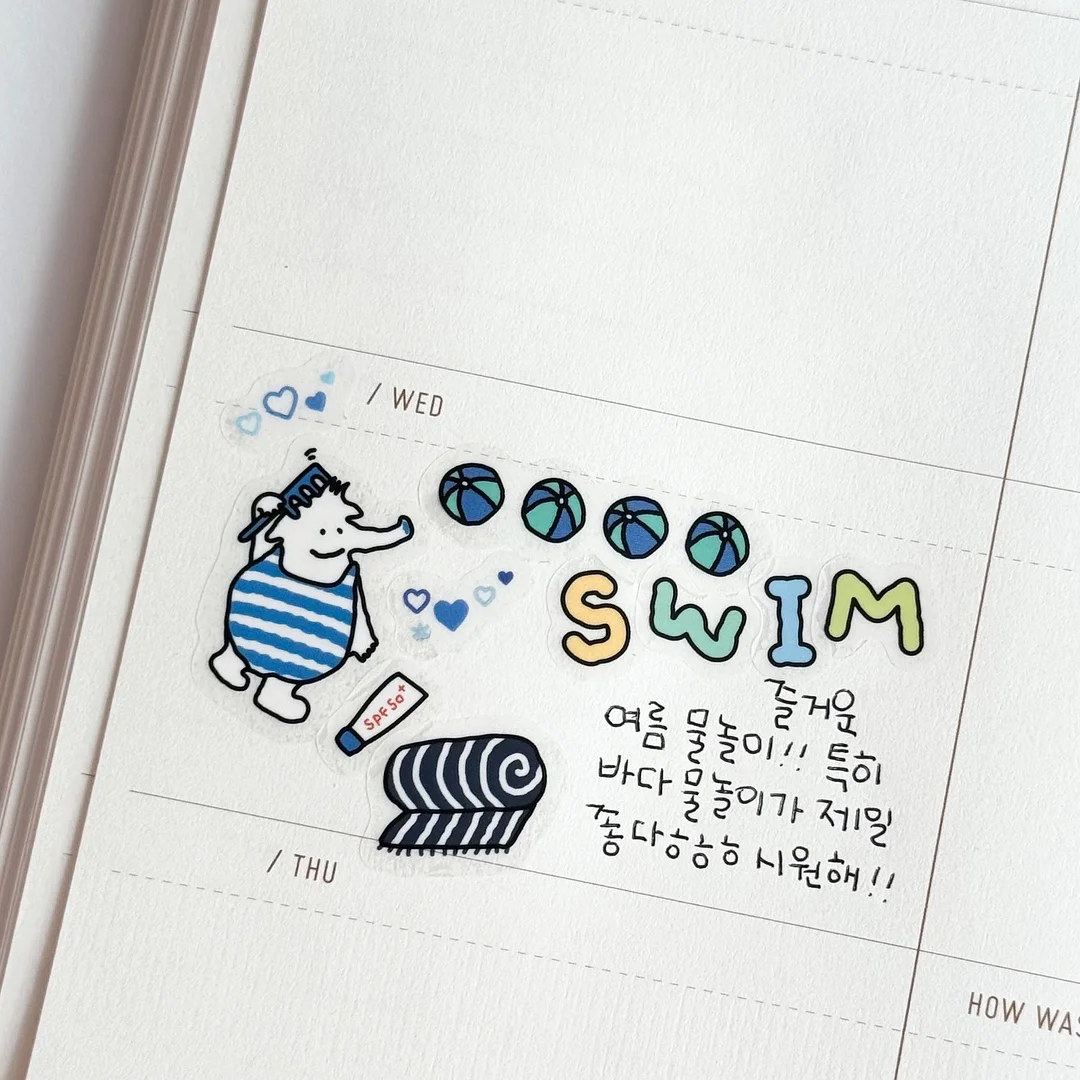 / WED
SWIM
SPF50+
즐거운
여름 물놀이!! 특히
바다 물놀이가 제밀
좋다ㅎㅎㅎ 시원해!!
/ THU
HOW WAS